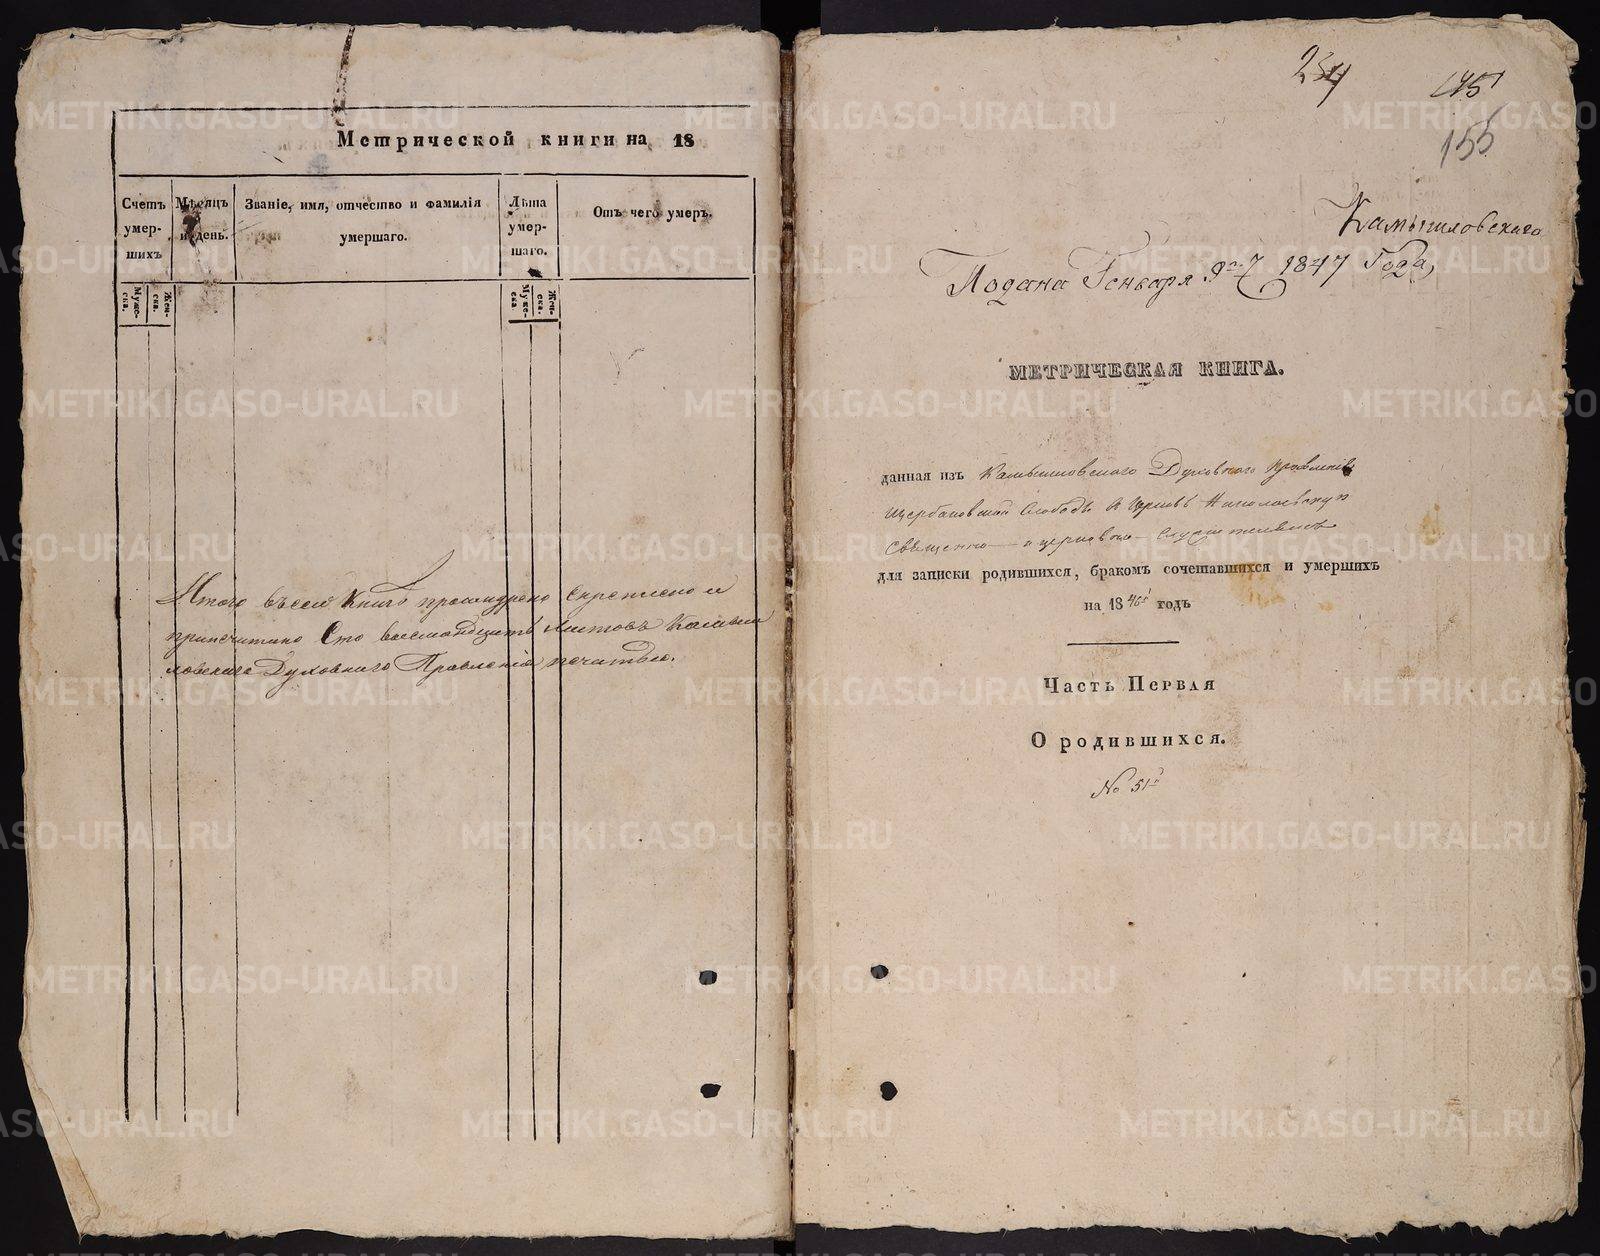 Метрической книги на 18
Счетъ умер- шихъ
Мѣсяцъ и день.
Званіе, имя, отчество и фамилія умершаго.
Лѣта умер- шаго.
Отъ чего умеръ.
Муже- ска.
Жен- ска.
Муже- ска
Жен- ска.
Итого въ сей Книгѣ прошнурено Скреплено и
припечатано Сто восемнадцать листовъ Камыш
ловскаго Духовнаго Правленія печатью.
254
155
Камышловскаго
Подана Генваря 7 1847 Года,
МЕТРИЧЕСКАЯ КНИГА.
данная изъ Камышловскаго Духовнаго Правленія
Щербаковской Слободы къ Церкви Николаевской
Священно- и церковно- служителямъ
для записки родившихся, бракомъ сочетавшихся и умершихъ
на 18 годъ
Часть Первая
О родившихся.
No 51й
METRIKI.GASO-URAL.RU